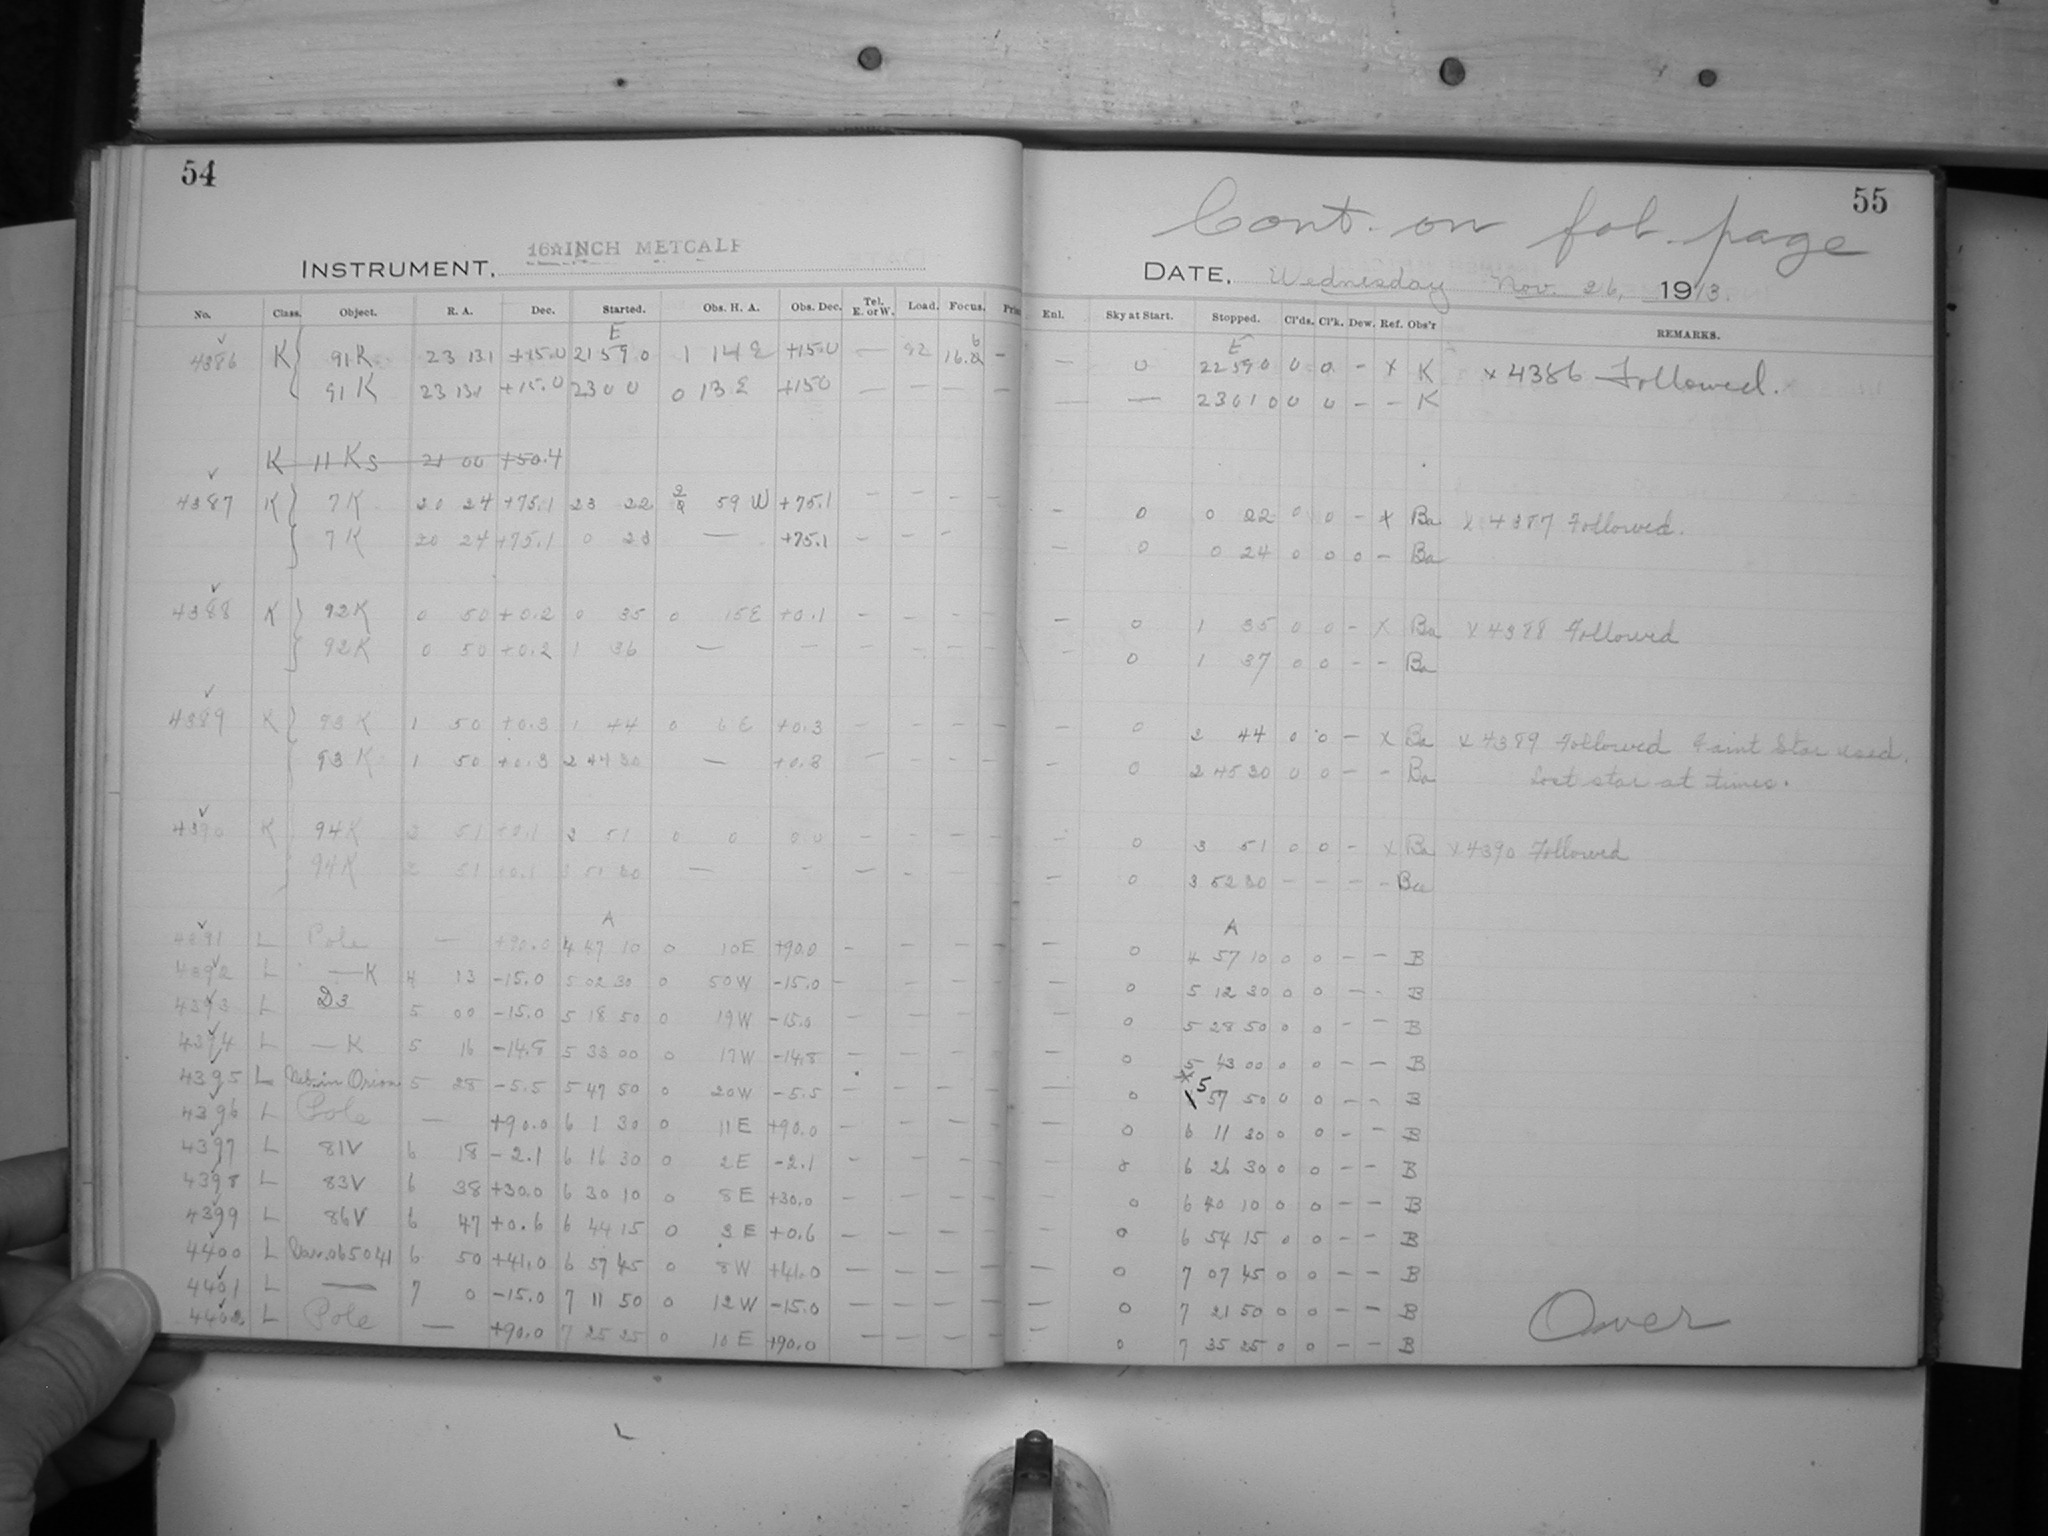 54
INSTRUMENT, 16 INCH METCALF
No. Class. Object. R. A. Dec. Started. Obs. H. A. Obs. Dec. Tel. E. or W. Load. Focus.
E
4386 K 91K 23 13.1 +15.0 21 59 0 1 14 E +15.0 — 92 16. —
91 K 23 13.1 +15.0 23 0 0 0 13 E +15.0 — — — —
K 11 Ks 21 00 +50.4
4387 K 7K 20 24 +75.1 23 22 59 W +75.1 — — — —
7K 20 24 +75.1 0 23 — +75.1 — — —
4388 K 92K 0 50 +0.2 0 35 0 15E +0.1 — — — —
92K 0 50 +0.2 1 36 — — — — — —
4389 K 93 K 1 50 +0.3 1 44 0 6 E +0.3 — — — —
93 K 1 50 +0.3 2 44 30 — — — — —
4390 K 94K 2 51 +0.1 2 51 0 0 0.0 — — — —
94K 2 51 +0.1 3 51 30 — — — — — —
A
4391 L Pole — +90.0 4 47 10 0 10E +90.0 — — — —
4392 L —K 4 13 -15.0 5 02 30 0 50W -15.0 — — — —
4393 L D3 5 00 -15.0 5 18 50 0 19W -15.0 — — — —
4394 L —K 5 16 -14.8 5 33 00 0 17W -14.8 — — — —
4395 L Neb. in Orion 5 28 -5.5 5 47 50 0 20W -5.5 — — — —
4396 L Pole — +90.0 6 1 30 0 11E +90.0 — — — —
4397 L 81V 6 18 -2.1 6 16 30 0 2E -2.1 — — — —
4398 L 83V 6 38 +30.0 6 30 10 0 8E +30.0 — — — —
4399 L 86V 6 47 +0.6 6 44 15 0 3 E +0.6 — — — —
4400 L Var. 065041 6 50 +41.0 6 57 45 0 8W +41.0 — — — —
4401 L — 7 0 -15.0 7 11 50 0 12W -15.0 — — — —
4402 L Pole — +90.0 7 25 25 0 10 E +90.0 — — — —
55
Cont. on fol. page
DATE, Wednesday Nov. 26, 1913.
Enl. Sky at Start. Stopped. Cl'ds. Cl'k. Dew. Ref. Obs'r REMARKS.
E
— 0 22 59 0 0 0 — x K x 4386 Followed.
— — 23 01 0 0 0 — — K
— 0 0 22 0 0 — x Ba x 4387 Followed.
— 0 0 24 0 0 0 — Ba
— 0 1 35 0 0 — x Ba x 4388 Followed
— 0 1 37 0 0 — — Ba
— 0 2 44 0 0 — x Ba x 4389 Followed Faint Star used.
0 2 45 30 0 0 — — Ba Lost star at times.
— 0 3 51 0 0 — x Ba x 4390 Followed
— 0 3 52 30 — — — — Ba
A
— 0 4 57 10 0 0 — — B
— 0 5 12 30 0 0 — — B
— 0 5 28 50 0 0 — — B
— 0 5 43 00 0 0 — — B
— 0 5 57 50 0 0 — — B
— 0 6 11 30 0 0 — — B
— 0 6 26 30 0 0 — — B
— 0 6 40 10 0 0 — — B
— 0 6 54 15 0 0 — — B
— 0 7 07 45 0 0 — — B
— 0 7 21 50 0 0 — — B
— 0 7 35 25 0 0 — — B
Over